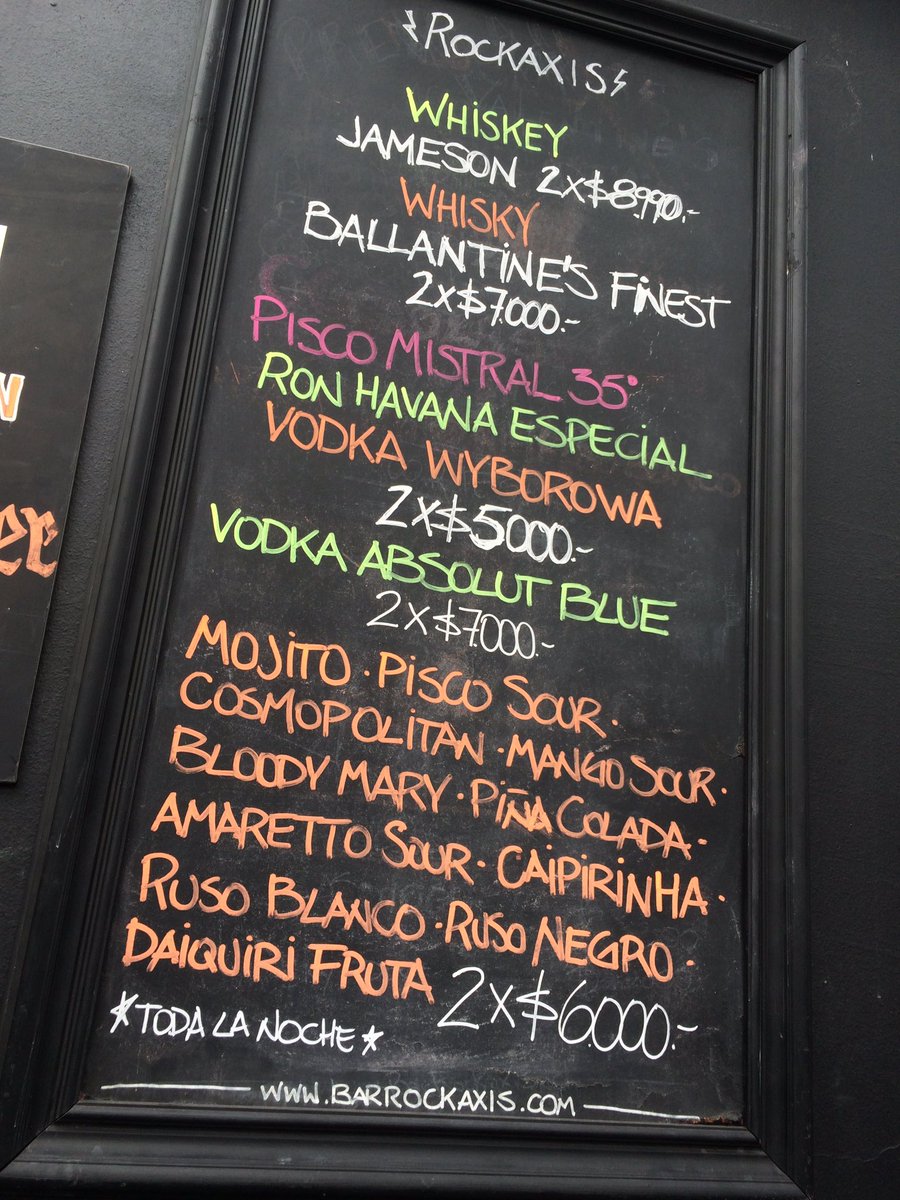 ROCKAXIS
WHISKEY
JAMESON 2X$8.990.-
WHISKY
BALLANTINE'S FINEST
2X$7.000.-
PISCO MISTRAL 35°
RON HAVANA ESPECIAL
VODKA WYBOROWA
2X$5000.-
VODKA ABSOLUT BLUE
2X$7.000.-
MOJITO · PISCO SOUR ·
COSMOPOLITAN · MANGO SOUR ·
BLOODY MARY · PIÑA COLADA ·
AMARETTO SOUR · CAIPIRINHA ·
RUSO BLANCO · RUSO NEGRO ·
DAIQUIRI FRUTA 2X$6.000.-
*TODA LA NOCHE*
WWW.BARROCKAXIS.COM